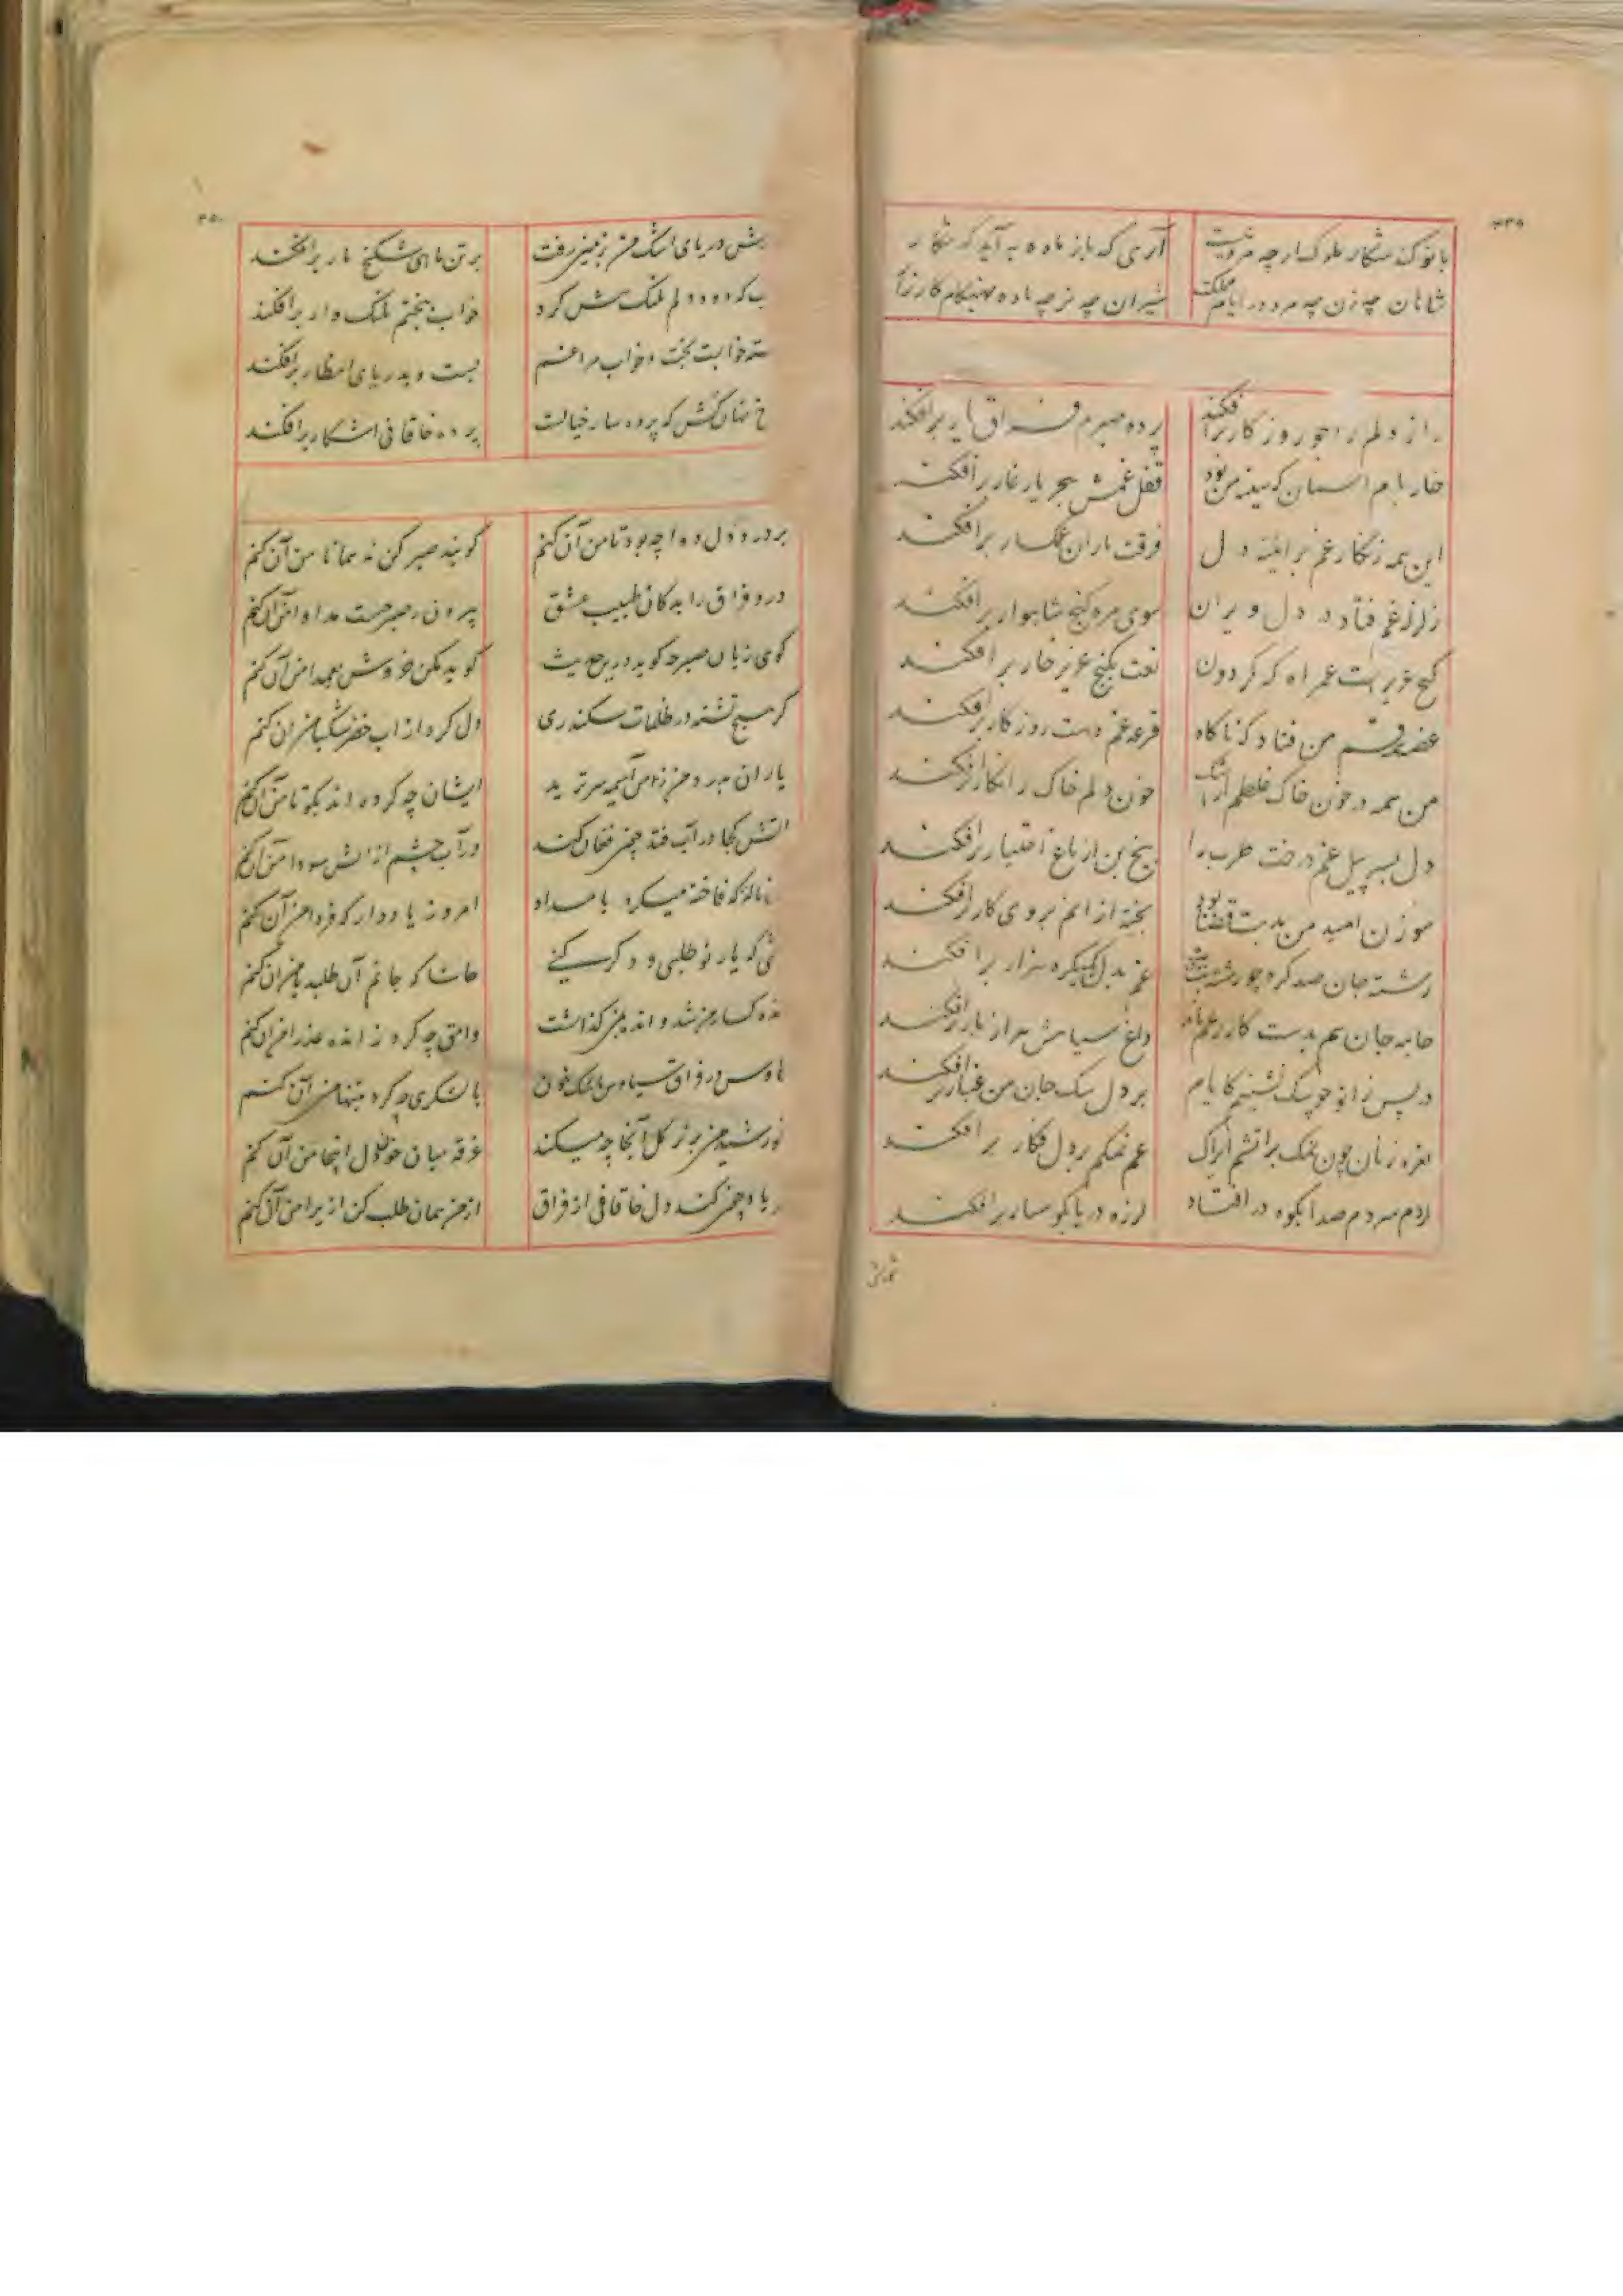 ۴۳۹
بانو کند شکار ملوک ارچه مرد نیست
آری که باز ماده به آید که شکار
شاهان چه زن چه مرد در ایام مملکت
شیران چه نر چه ماده بهنگام کارزار
راز دلم را جور روزگار برافکند
پرده صبرم فراق یار برافکند
خار بام آسمان که سینه من بود
قفل غمش هجر یار غار برافکند
این همه زنگار غم بر آینه دل
فرقت یاران غمگسار برافکند
زلزله غم فتاد در دل ویران
سوی مژه گنج شاهوار برافکند
گنج عزیز است عمر آه که گردون
نقب بگنج عزیز خار برافکند
من فتاد که ناگاه
قرعه غم دست روزگار برافکند
من همه در خون خاک غلطم از اشک
خون دلم خاک را نگار برافکند
دل بسر پیل غم درخت طرب را
بیخ و بن از باغ اختیار برافکند
سوزن امید من بدست قضا بود
بخیه از آنم بروی کار برافکند
رشته جان صد گره چو رشته تب داشت
غم بدل یکگره هزار برافکند
جامه جان هم بدست گازر غم ماند
داغ سیاهش هزار بار برافکند
در پس زانو چو سگ نشینم کایام
بر دل سگ جان من غبار برافکند
نعره زنان چون نمک بر آتشم ایراک
غم نمکم بر دل فگار برافکند
از دم سردم صدا بکوه در افتاد
لرزه دریا بکوهسار برافکند
۴۵۰
دریای اشک من بزمین رفت
بر تن ماهی شکنج مار برافکند
که دود دلم فلک سیهش کرد
خواب ببختم فلک وار برافکند
خوابست بخت و خواب مرا غم
بست و بدریای انتظار برافکند
نهان کش که پرده سار خیالت
پرده خاقانی آشکار برافکند
بر درد دل دوا چه بود تا من آن کنم
گویند صبر کن نه همانا من آن کنم
درد فراق را بدکان طبیب عشق
بیرون ز صبر چیست مداوا من آن کنم
گوی زبان صبر چه گوید درین حدیث
گوید مکن خروش بعمدا من آن کنم
گر هیچ تشنه در ظلمات سکندری
دل کرد از آب خضر شکیبا من آن کنم
یاران بدرد من ز من آسیمه سرترند
ایشان چه کرده اند بگو تا من آن کنم
آتش کجا در آب فتد چون فغان کند
در آب چشم از آتش سودا من آن کنم
ناله که فاخته میکرد بامداد
امروز یاد دار که فردا من آن کنم
که یار نو طلبی و دگر کنی
حاشا که جانم آن طلبد یا من آن کنم
من شد و اندر من گذاشت
وامق چه کرد ز انده عذرا من آن کنم
در فراق سیاوش باشک خون
با لشکری چه کرد بتنها من آن کنم
خورشید من بزیر گل آنجا چه میکند
غرقه میان خون دل اینجا من آن کنم
چون کند دل خاقانی از فراق
از من همان طلب کن ازیرا من آن کنم